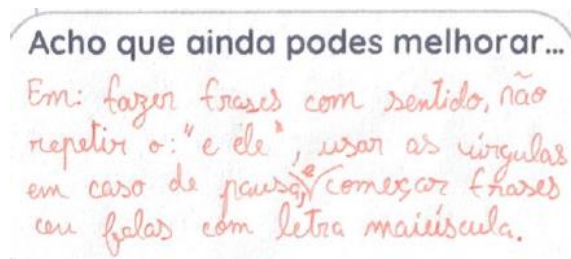 Acho que ainda podes melhorar...
Em: fazer frases com sentido, não
repetir o: "e ele", usar as vírgulas
em caso de pausa, e começar frases
ou falas com letra maiúscula.